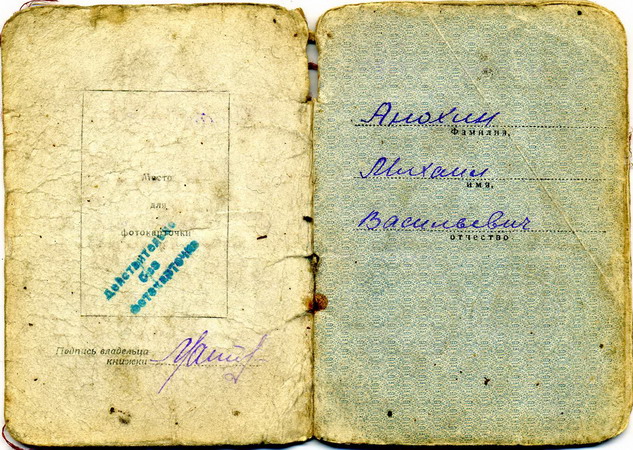 Место
для
фотокарточки
Действительно
без
фотокарточки
Подпись владельца
книжки
Анохин
Фамилия,
Михаил
имя,
Васильевич
отчество